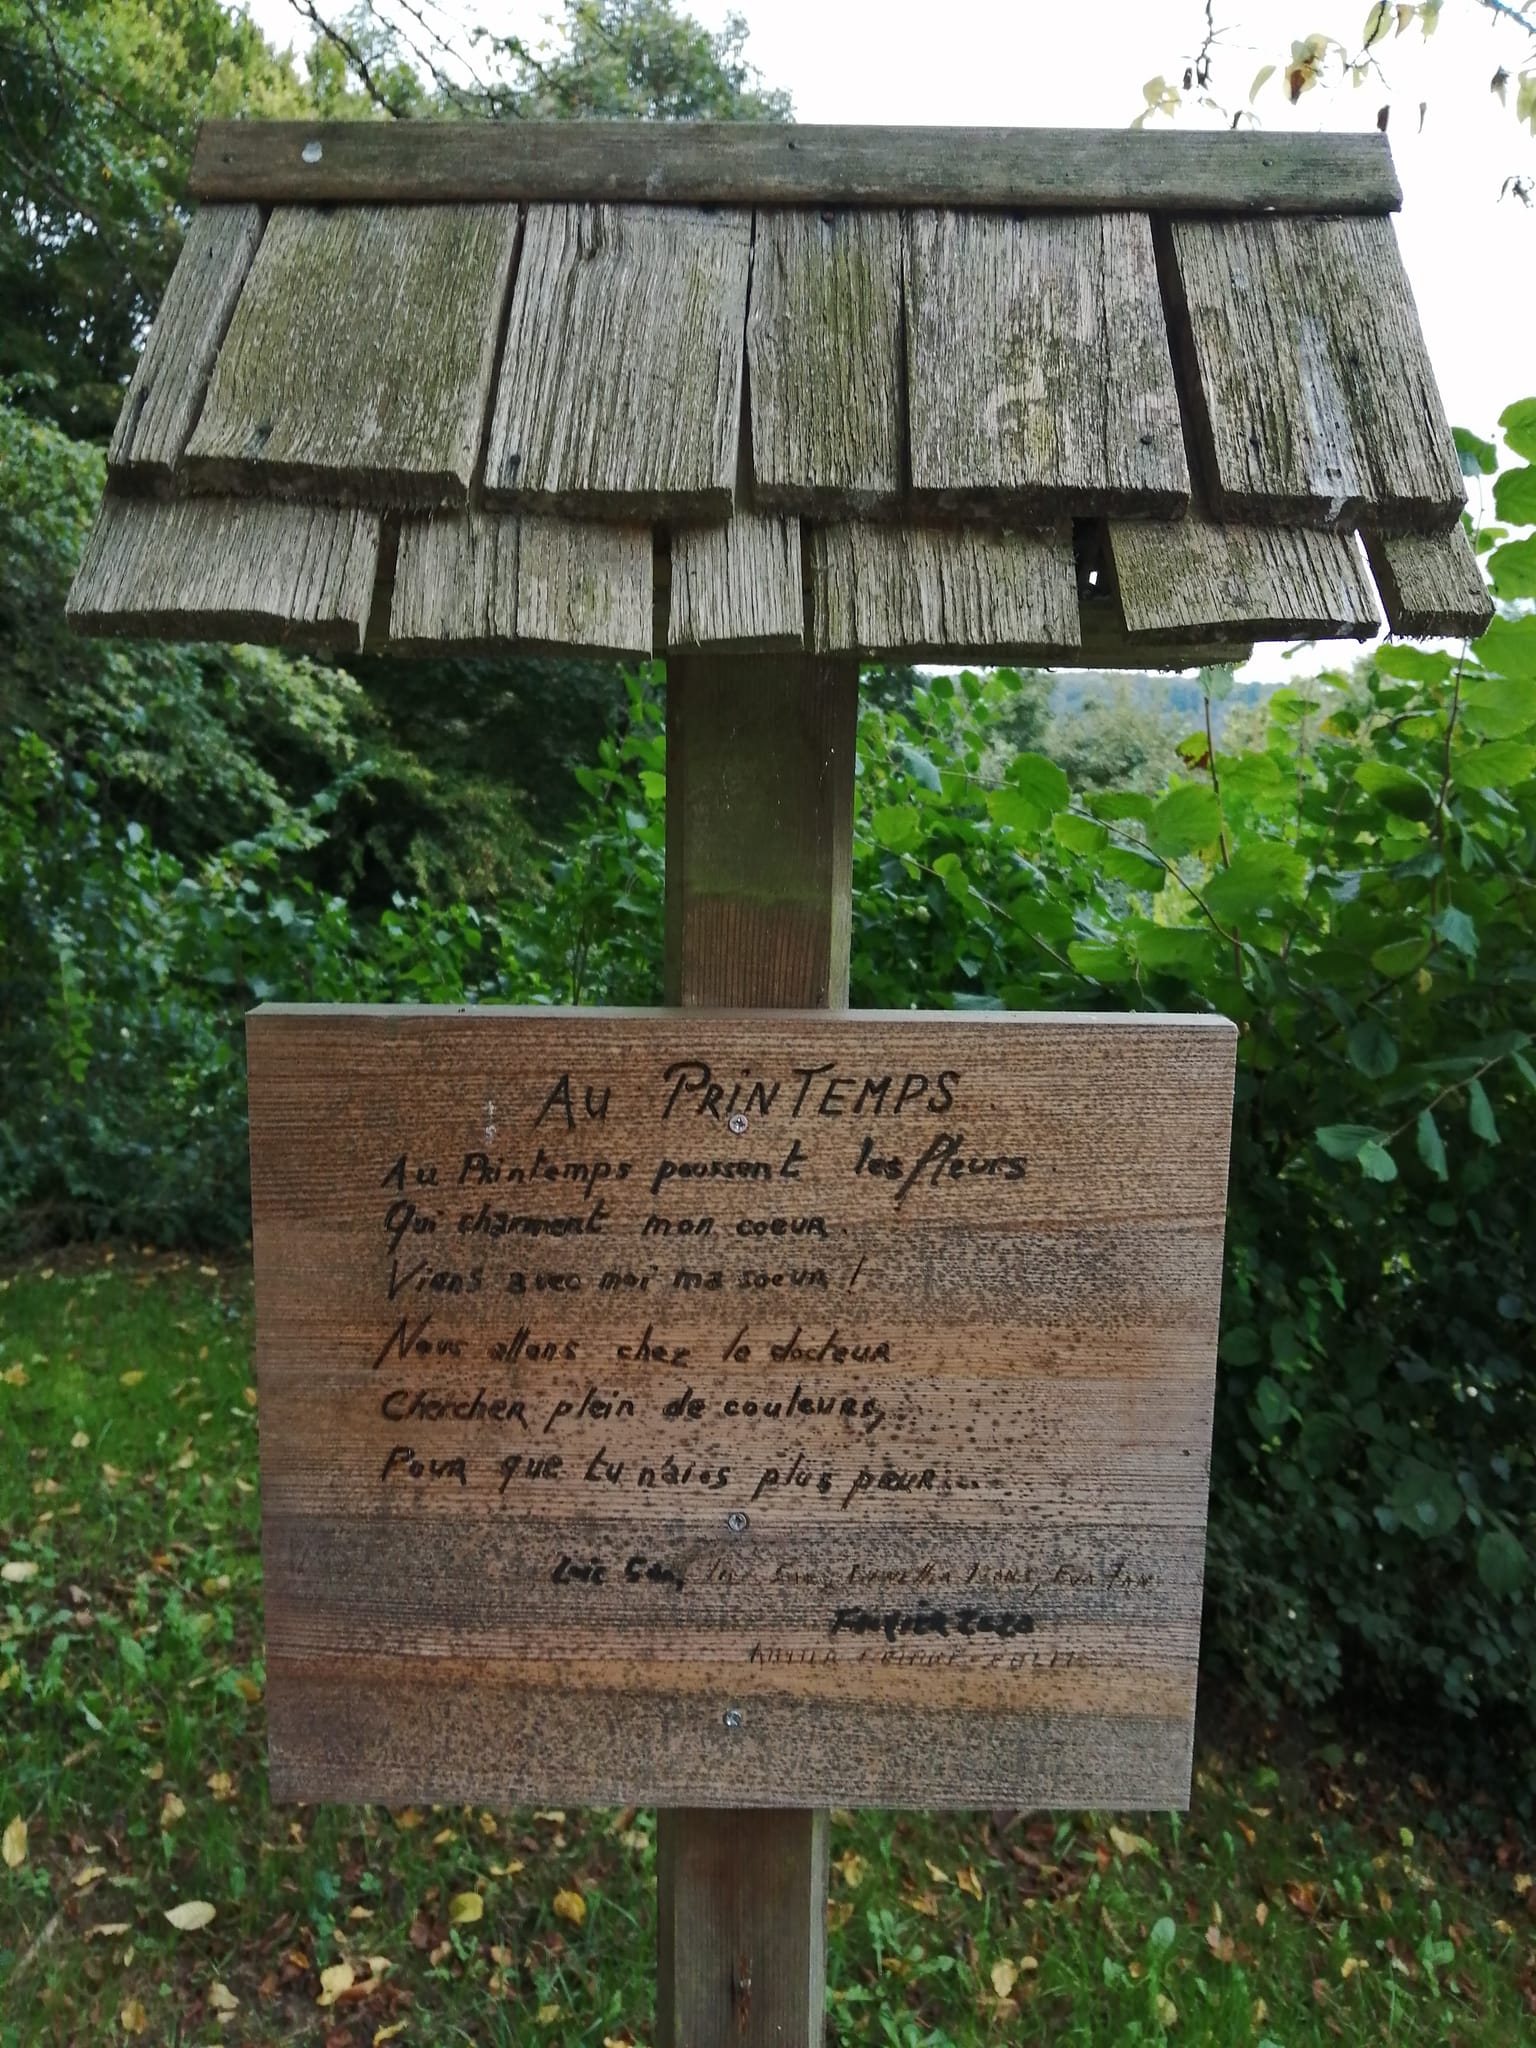 AU PRINTEMPS
Au Printemps poussent les fleurs
Qui charment mon coeur.
Viens avec moi ma soeur !
Nous allons chez le docteur
Chercher plein de couleurs,
Pour que tu n'aies plus peur...
Loïc
Février 2020